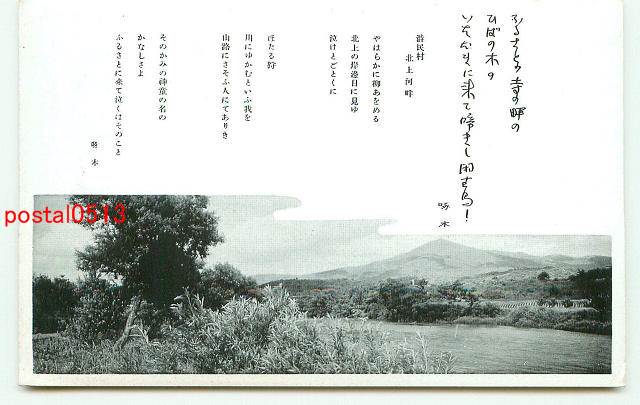 ふるさとの寺の畔の
ひばの木の
いただきに来て啼きし閑古鳥!
啄木
澁民村
北上河畔
やはらかに柳あをめる
北上の岸邊目に見ゆ
泣けとごとくに
ほたる狩
川にゆかむといふ我を
山路にさそふ人にてありき
そのかみの神童の名の
かなしさよ
ふるさとに来て泣くはそのこと
啄木
postal0513